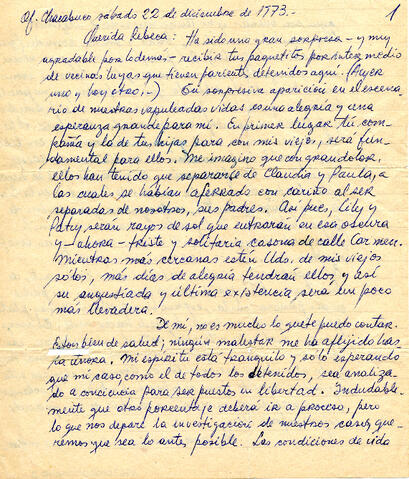 Of. Chacabuco sábado 22 de diciembre de 1973.-
1
Querida Rebeca: Ha sido una gran sorpresa - y muy
agradable por lo demás - recibir tus paquetitos por intermedio
de vecinas tuyas que tienen parientes detenidos aquí. (Ayer
uno y hoy otro.-) Tú sorpresiva aparición en el escena-
rio de nuestras vapuleadas vidas es una alegría y una
esperanza grande para mí. En primer lugar tú com-
pañía y la de tus hijas para con mis viejos, será fun-
damental para ellos. Me imagino que con gran dolor,
ellos han tenido que separarse de Claudia y Paula, a
las cuales se habían aferrado con cariño al ser
separadas de nosotros, sus padres. Así pues, Lily y
Patry serán rayos de sol que entrarán en esa oscura
y - ahora - triste y solitaria casona de calle Carmen.
Mientras más cercanas estén Uds. de mis viejos
solos, más días de alegría tendrán ellos y así
su angustiada y última existencia será un poco
más llevadera.
De mí, no es mucho lo que te puedo contar.
Estoy bien de salud; ningún malestar me ha afligido has-
ta ahora. Mi espíritu está tranquilo y solo esperando
que mi caso, como el de todos los detenidos, sea analiza-
do a conciencia para ser puestos en libertad. Indudable-
mente que otro porcentaje deberá ir a proceso, pero
lo que nos depare la investigación de nuestros casos, que-
remos que sea lo antes posible. Las condiciones de vida